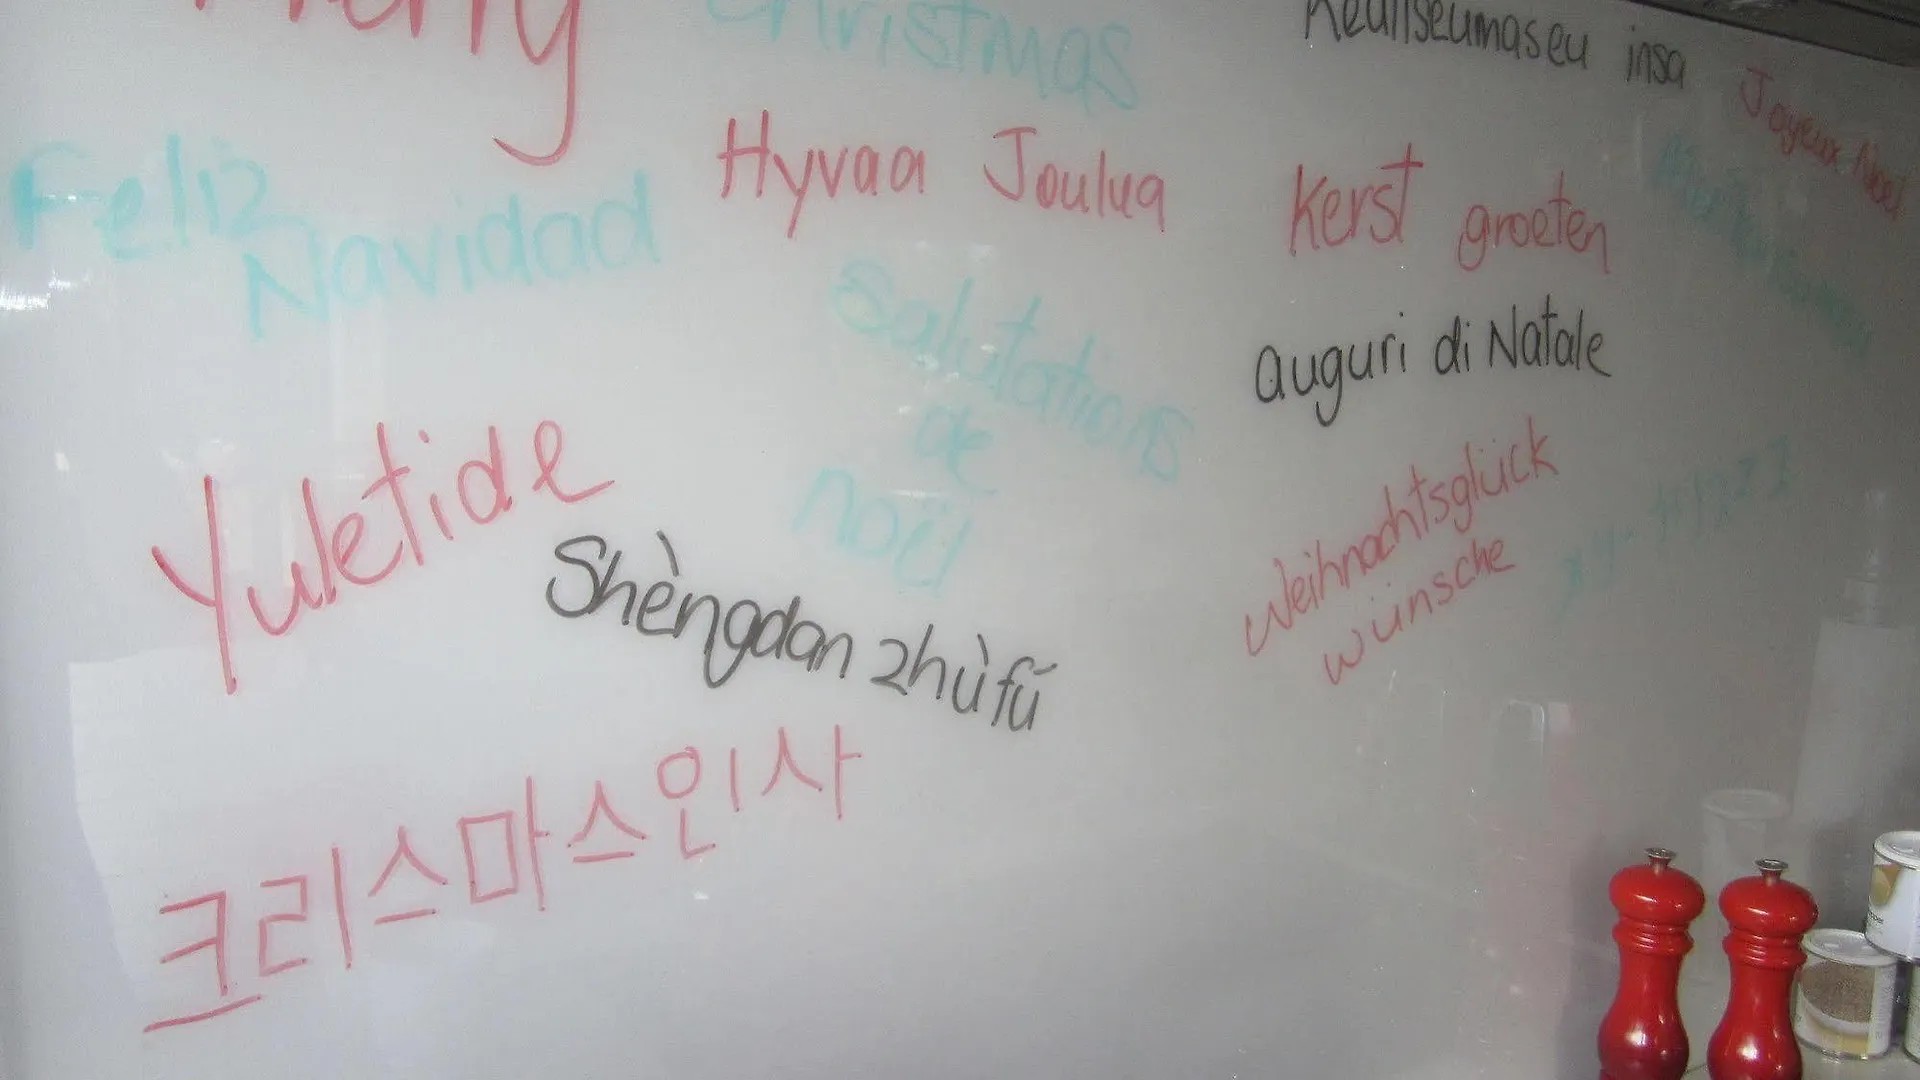 Merry Christmas
Keuliseumaseu insa
Joyeux Noel
Feliz
Navidad
Hyvaa Joulua
Kerst groeten
Salutations
de
noël
auguri di Natale
Yuletide
Weihnachtsglück
wünsche
Shèngdan zhùfú
크리스마스인사